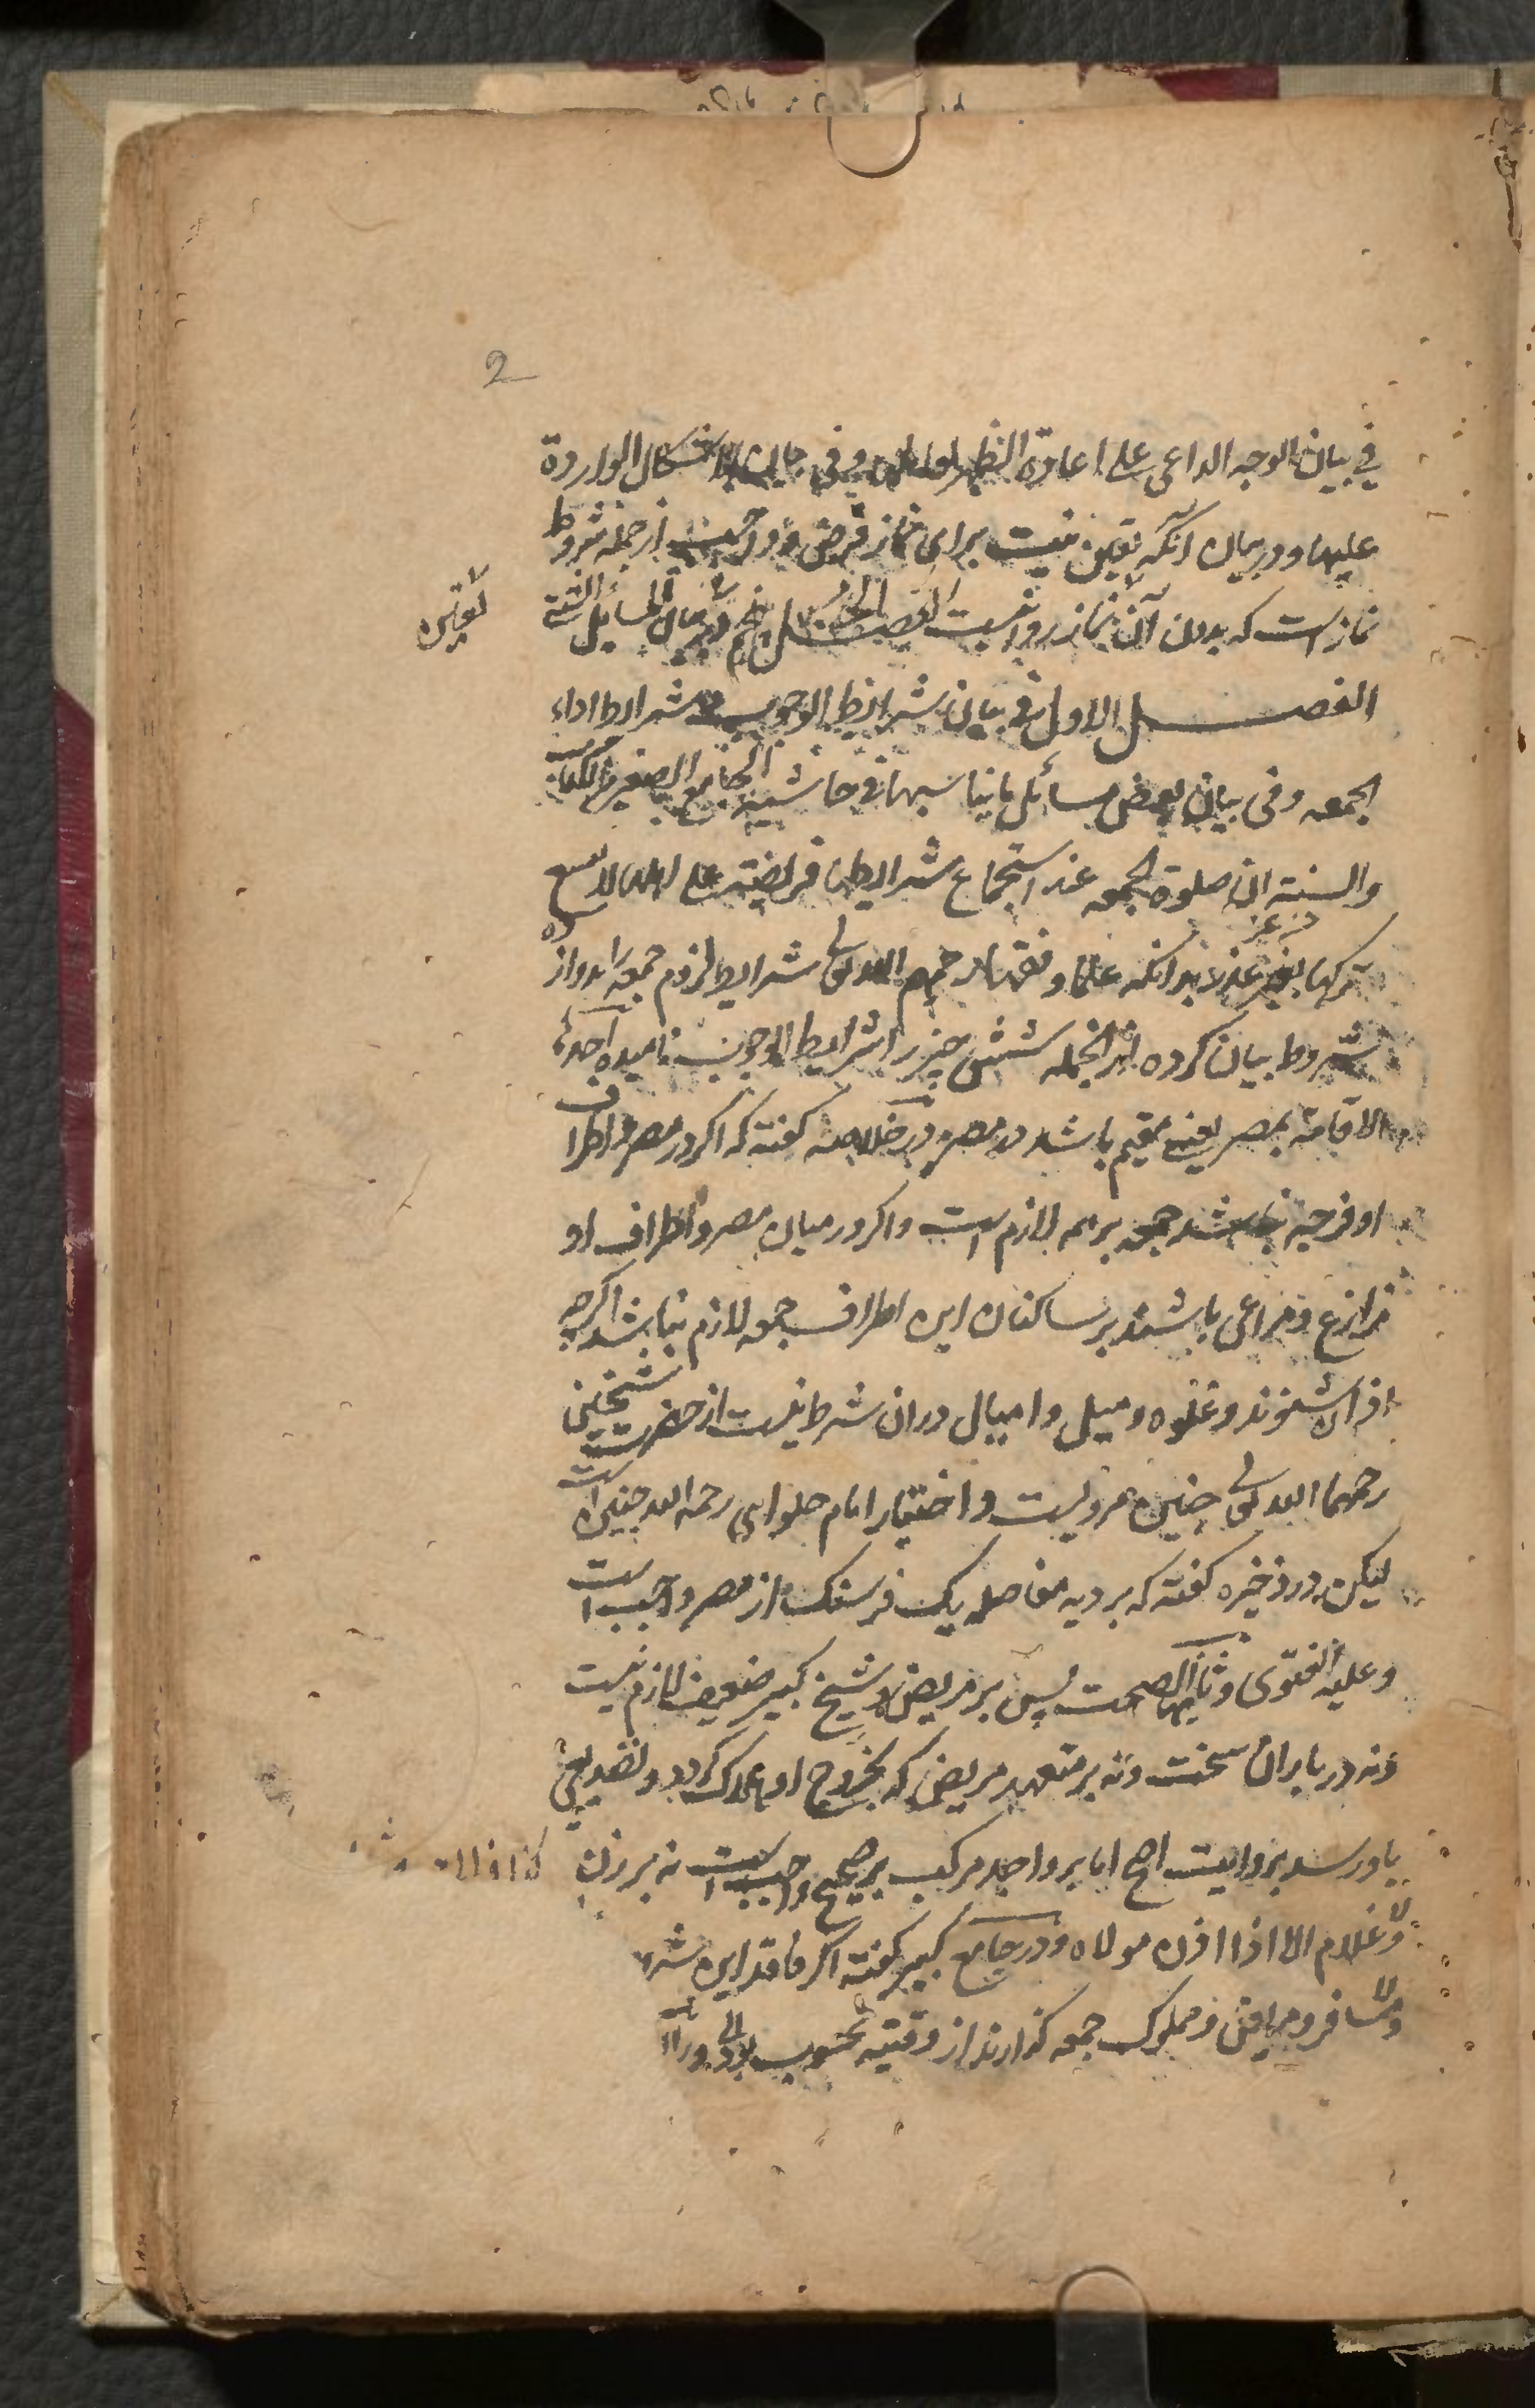 2
في بيان الوجه الداعي على اعادة الظهر وفي بيان الاشكال الواردة
عليها ودر بيان آنكه تعين نيت براى نماز فرض و واجب از جمله شروط
نماز است كه بدون آن نماز روا نيست الفصل الخامس در بيان المسائل الشتى
تعيين
الفصل الاول في بيان شرايط الوجوب و شرايط اداء
الجمعه وفي بيان بعض مسائل يناسبها في حاشية الجامع الصغير بالكتاب
والسنة ان صلوة الجمعه عند استجماع شرايطها فريضة على لا يسع
تركها بغير عذر بدانكه علما و فقها رحمهم الله تعالى شرايط لزوم جمعه دوازده
شروط بيان كرده از انجمله شش چيز را شرايط الوجوب ناميده احدها
الاقامة بمصر يعني مقيم باشد در مصر و در خلاصه گفته كه اگر در مصر و اطراف
او فرجه نباشد جمعه بر همه لازم است و اگر در ميان مصر و اطراف او
مزارع و مراعى باشند بر ساكنان اين اطراف جمعه لازم نباشد اگرچه
اذان شنوند و غلوه و ميل و اميال در ان شرط نيست از حضرت شيخين
رحمهما الله تعالى چنين مرويست و اختيار امام حلوايى رحمه الله چنين است
ليكن در ذخيره گفته كه بر ديه مفاصله يك فرسنگ از مصر واجب است
وعليه الفتوى و ثانيها الصحت پس بر مريض و شيخ كبير ضعيف لازم نيست
و نه در باران سخت و نه بر متعهد مريض كه بخروج او هلاک گردد و تصديعى
باو رسد بروايت اصح اما بر واجد مركب بر صحيح واجب است نه بر زن
و غلام الا اذا اذن مولاه و در جامع كبير گفته اگر فاقد اين
و مسافر و مريض و مملوک جمعه گذارند از وقتيه محسوب بود